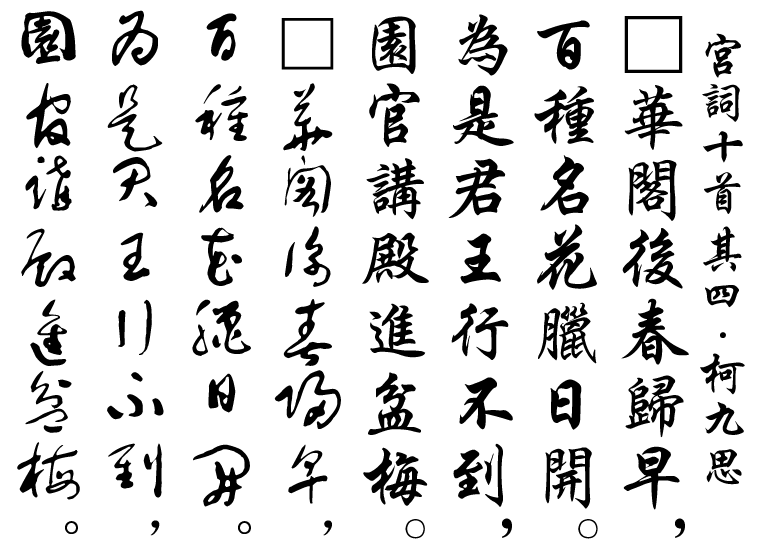 宮詞十首其四．柯九思
□華閣後春歸早，
百種名花臘日開○
為是君王行不到，
園官講殿進盆梅○
□華閣後春歸早，
百種名花臘日開。
為是君王行不到，
園官講殿進盆梅。